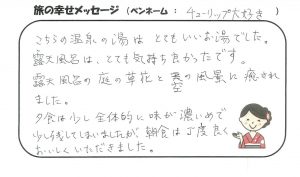 旅の幸せメッセージ（ペンネーム：チューリップ大好き）
こちらの温泉の湯は とてもいいお湯でした。
露天風呂は、とても気持ち良かったです。
露天風呂の庭の草花と裏の風景に癒され
ました。
夕食は少し全体的に味が濃いめで
少し残してしまいましたが、朝食は丁度良く
おいしくいただきました。